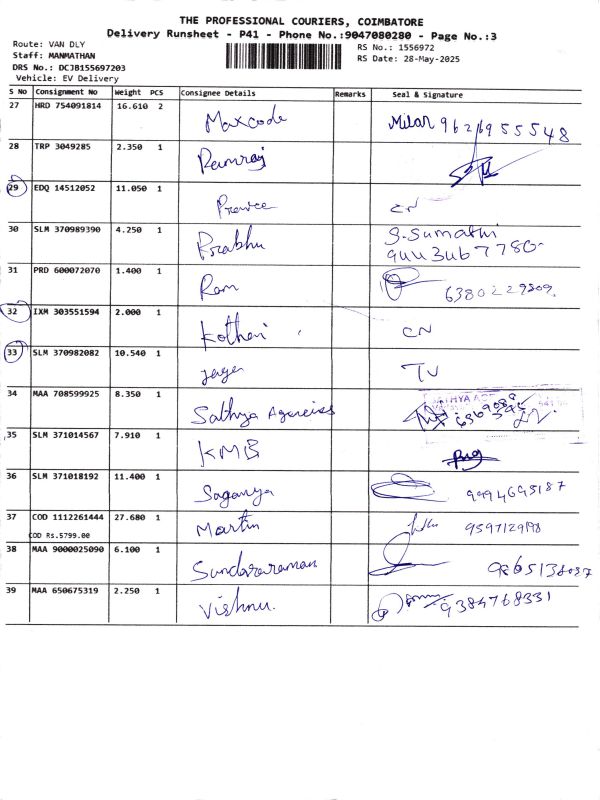 THE PROFESSIONAL COURIERS, COIMBATORE
Delivery Runsheet - P41 - Phone No.:9047080280 - Page No.:3
Route: VAN DLY
Staff: MANMATHAN
DRS No.: DCJB155697203
Vehicle: EV Delivery
RS No.: 1556972
RS Date: 28-May-2025
S No Consignment No Weight PCS Consignee Details Remarks Seal & Signature
27 HRD 754091814 16.610 2 Maxcode
28 TRP 3049285 2.350 1 Ramraj
29 EDQ 14512052 11.050 1 CN
30 SLM 370989390 4.250 1 Prabhu S.Sumathi
31 PRD 600072070 1.400 1 Ram 6380229809
32 IXM 303551594 2.000 1 Kothari CN
33 SLM 370982082 10.540 1
34 MAA 708599925 8.350 1 Sathya Agencies
35 SLM 371014567 7.910 1 KMB
36 SLM 371018192 11.400 1 Saganya 9994695187
37 COD 1112261444 27.680 1 Martin 9597129198
COD Rs.5799.00
38 MAA 9000025090 6.100 1 Sundararaman
39 MAA 650675319 2.250 1 Vishnu. 9384768331